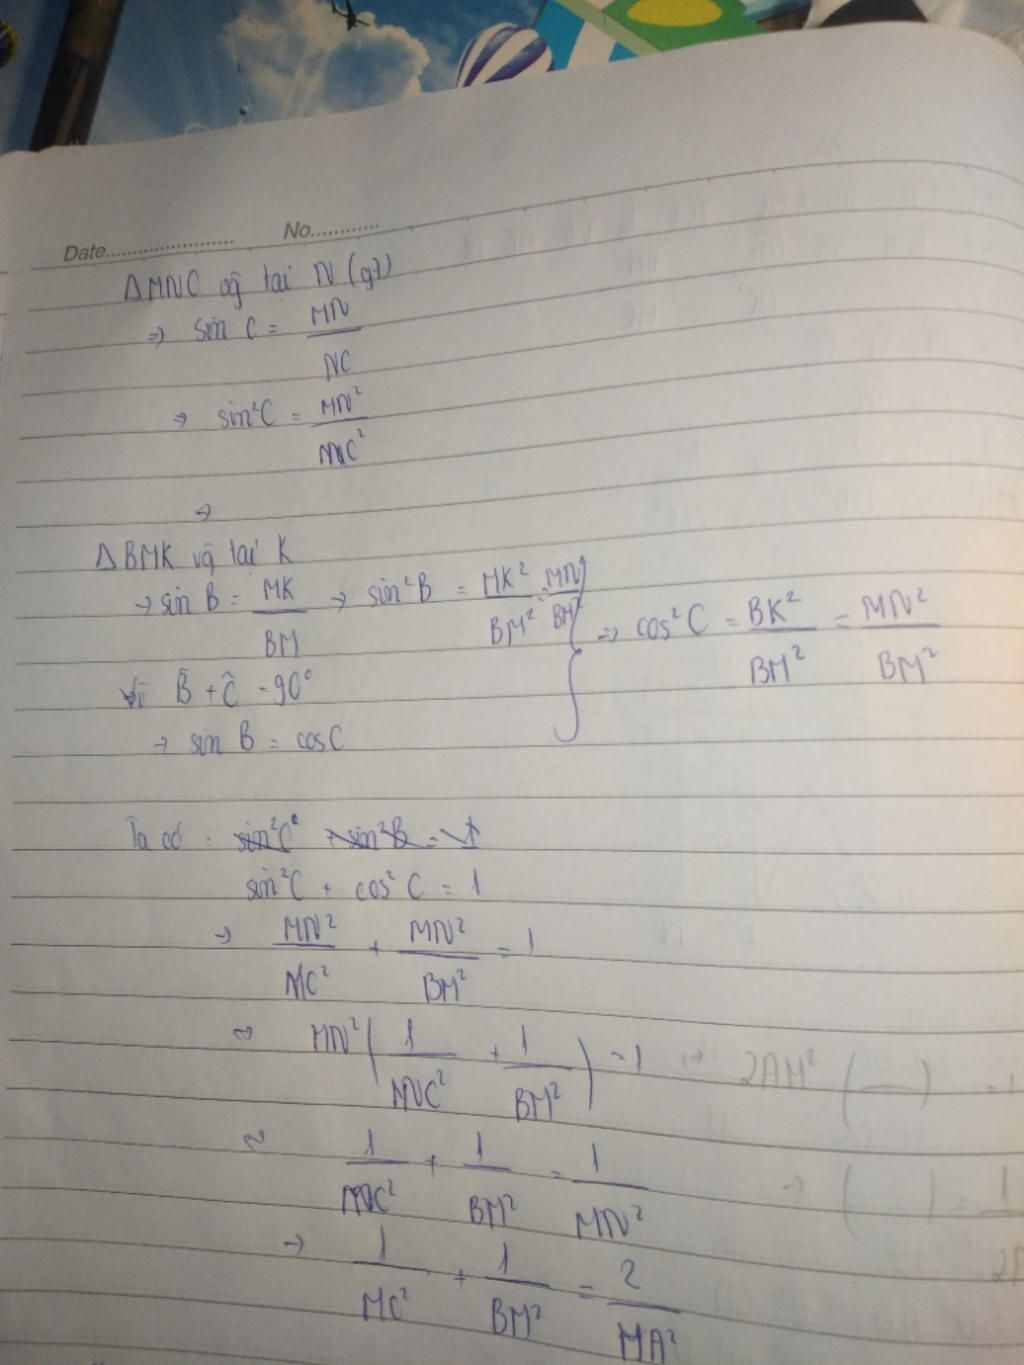 Date........................ No............
ΔMNC vg̃ tại N (gt)
⇒ sin C = MN/NC
⇒ sin²C = MN²/MC²
⇒
ΔBMK vg̃ tại K
→ sin B = MK/BM → sin²B = MK²/BM² = MN²/BM² } ⇒ cos²C = BK²/BM² = MN²/BM²
Vì B̂ + Ĉ = 90°
→ sin B = cos C
Ta có : sin²C + sin²B = 1
sin²C + cos²C = 1
→ MN²/MC² + MN²/BM² = 1
⇒ MN² ( 1/MC² + 1/BM² ) = 1 → 2AM² ( — ) = 1
⇒ 1/MC² + 1/BM² = 1/MN² → ( ) = 1
→ 1/MC² + 1/BM² = 2/MA²